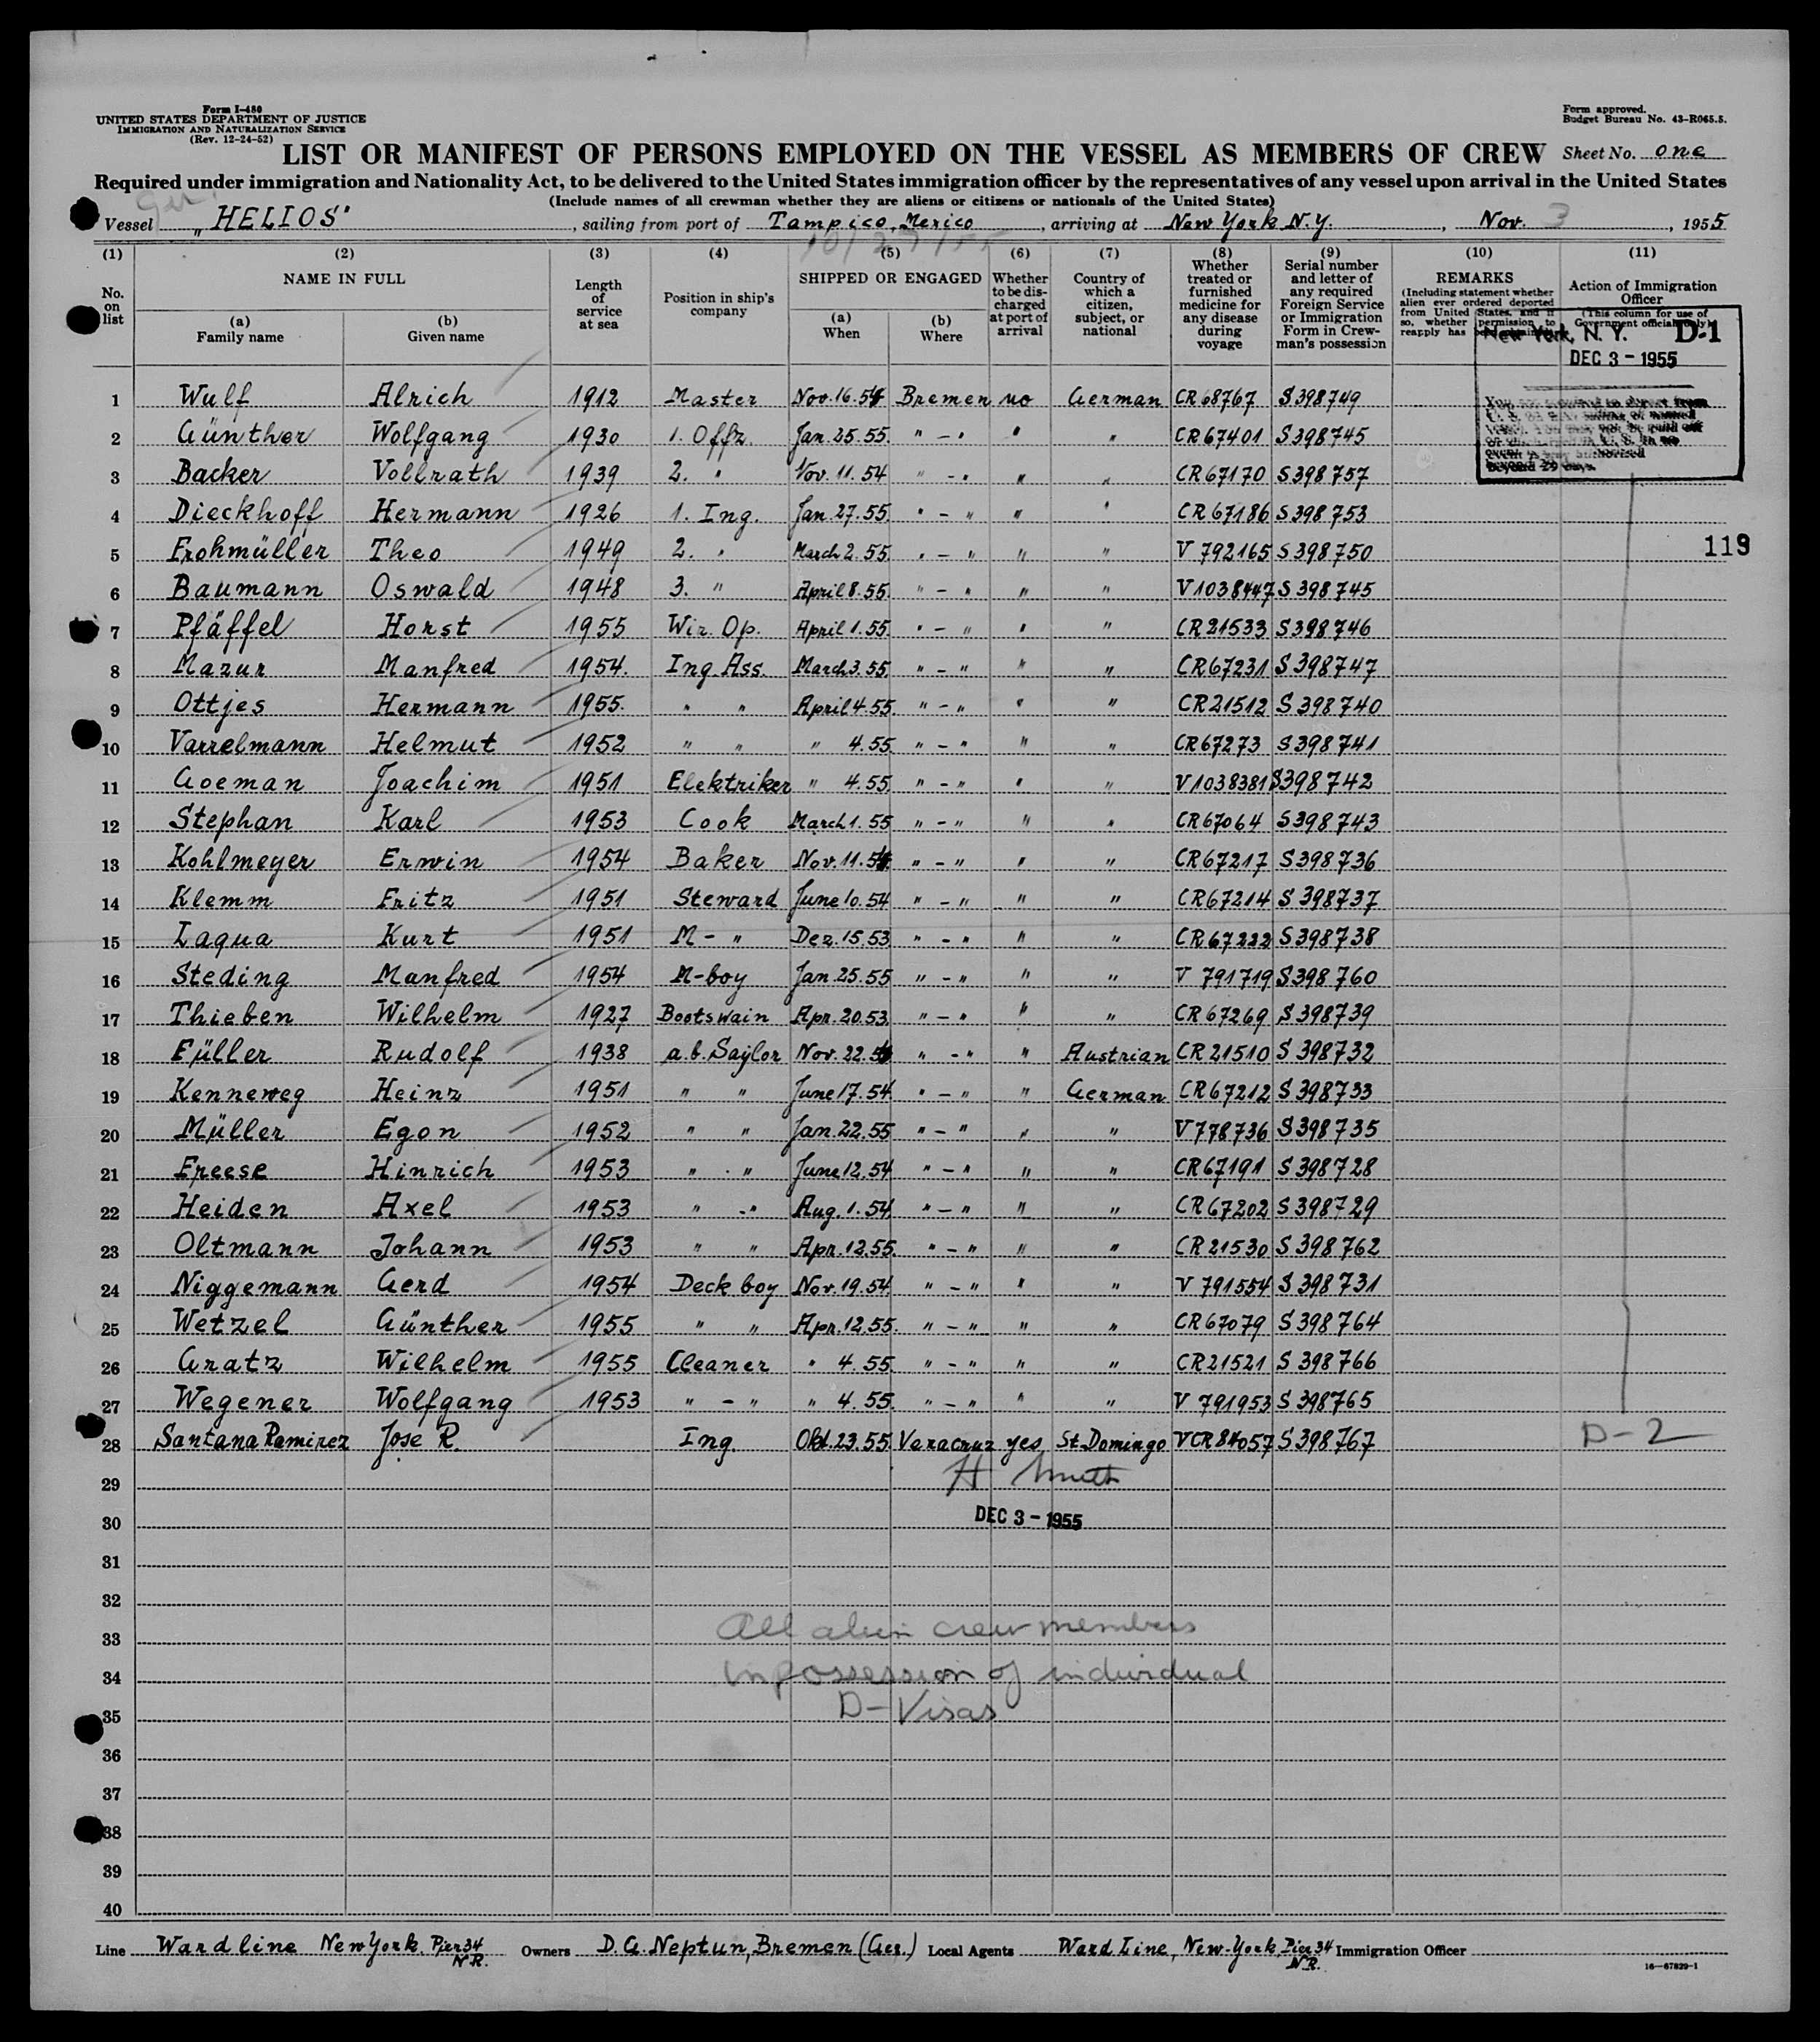 Form I-480
UNITED STATES DEPARTMENT OF JUSTICE
IMMIGRATION AND NATURALIZATION SERVICE
(Rev. 12-24-52)
Form approved.
Budget Bureau No. 43-R065.5.
LIST OR MANIFEST OF PERSONS EMPLOYED ON THE VESSEL AS MEMBERS OF CREW Sheet No. one
Required under immigration and Nationality Act, to be delivered to the United States immigration officer by the representatives of any vessel upon arrival in the United States
(Include names of all crewman whether they are aliens or citizens or nationals of the United States)
Ger.
Vessel „HELIOS", sailing from port of Tampico, Mexico, arriving at New York N.Y., Nov. 3, 1955
10/27/55
(1) (2) (3) (4) (5) (6) (7) (8) (9) (10) (11)
No. on list
NAME IN FULL
(a) Family name
(b) Given name
Length of service at sea
Position in ship's company
SHIPPED OR ENGAGED
(a) When
(b) Where
Whether to be discharged at port of arrival
Country of which a citizen, subject, or national
Whether treated or furnished medicine for any disease during voyage
Serial number and letter of any required Foreign Service or Immigration Form in Crewman's possession
REMARKS
(Including statement whether alien ever ordered deported from United States, and if so, whether permission to reapply has
Action of Immigration Officer
(This column for use of Government officials only)
New York, N. Y. D-1
DEC 3 - 1955
1 Wulf Alrich 1912 Master Nov. 16. 54 Bremen no German CR 68767 S 398749
2 Günther Wolfgang 1930 1. Offz. Jan. 25. 55. " - " " " CR 67401 S 398745
3 Backer Vollrath 1939 2. " Nov. 11. 54 " - " " " CR 67170 S 398757
4 Dieckhoff Hermann 1926 1. Ing. Jan. 27. 55. " - " " " CR 67186 S 398753
5 Frohmüller Theo 1949 2. " March 2. 55. " - " " " V 792165 S 398750
119
6 Baumann Oswald 1948 3. " April 8. 55. " - " " " V 1038447 S 398745
7 Pfäffel Horst 1955 Wir. Op. April 1. 55. " - " " " CR 21533 S 398746
8 Mazur Manfred 1954. Ing. Ass. March 3. 55. " - " " " CR 67231 S 398747
9 Ottjes Hermann 1955. " " April 4. 55 " - " " " CR 21512 S 398740
10 Varrelmann Helmut 1952 " " " 4. 55. " - " " " CR 67273 S 398741
11 Goeman Joachim 1951 Elektriker " 4. 55. " - " " " V 1038381 S 398742
12 Stephan Karl 1953 Cook March 1. 55 " - " " " CR 67064 S 398743
13 Kohlmeyer Erwin 1954 Baker Nov. 11. 54. " - " " " CR 67217 S 398736
14 Klemm Fritz 1951 Steward June 10. 54 " - " " " CR 67214 S 398737
15 Laqua Kurt 1951 M- " Dez. 15. 53 " - " " " CR 67222 S 398738
16 Steding Manfred 1954 M-boy Jan. 25. 55 " - " " " V 791719 S 398760
17 Thieben Wilhelm 1927 Bootswain Apr. 20. 53. " - " " " CR 67269 S 398739
18 Füller Rudolf 1938 a. b. Saylor Nov. 22. 54 " - " " Austrian CR 21510 S 398732
19 Kenneweg Heinz 1951 " " June 17. 54. " - " " German CR 67212 S 398733
20 Müller Egon 1952 " " Jan. 22. 55 " - " " " V 778736 S 398735
21 Freese Hinrich 1953 " " June 12. 54 " - " " " CR 67191 S 398728
22 Heiden Axel 1953 " " Aug. 1. 54 " - " " " CR 67202 S 398729
23 Oltmann Johann 1953 " " Apr. 12. 55. " - " " " CR 21530 S 398762
24 Niggemann Gerd 1954 Deck boy Nov. 19. 54. " - " " " V 791554 S 398731
25 Wetzel Günther 1955 " " Apr. 12. 55. " - " " " CR 67079 S 398764
26 Gratz Wilhelm 1955 Cleaner " 4. 55. " - " " " CR 21521 S 398766
27 Wegener Wolfgang 1953 " - " " 4. 55. " - " " " V 791953 S 398765
28 Santana Ramirez Jose R. Ing. Okt. 23. 55. Veracruz yes St. Domingo VCR 84057 S 398767 D-2
29 H
30 DEC 3 - 1955
31
32
33 All alien crew members
34 in possession of individual
35 D- Visas
36
37
38
39
40
Line Ward line New York, Pier 34 N.R. Owners D. G. Neptun, Bremen (Ger.) Local Agents Ward Line, New-York, Pier 34 N.R. Immigration Officer
16-67829-1